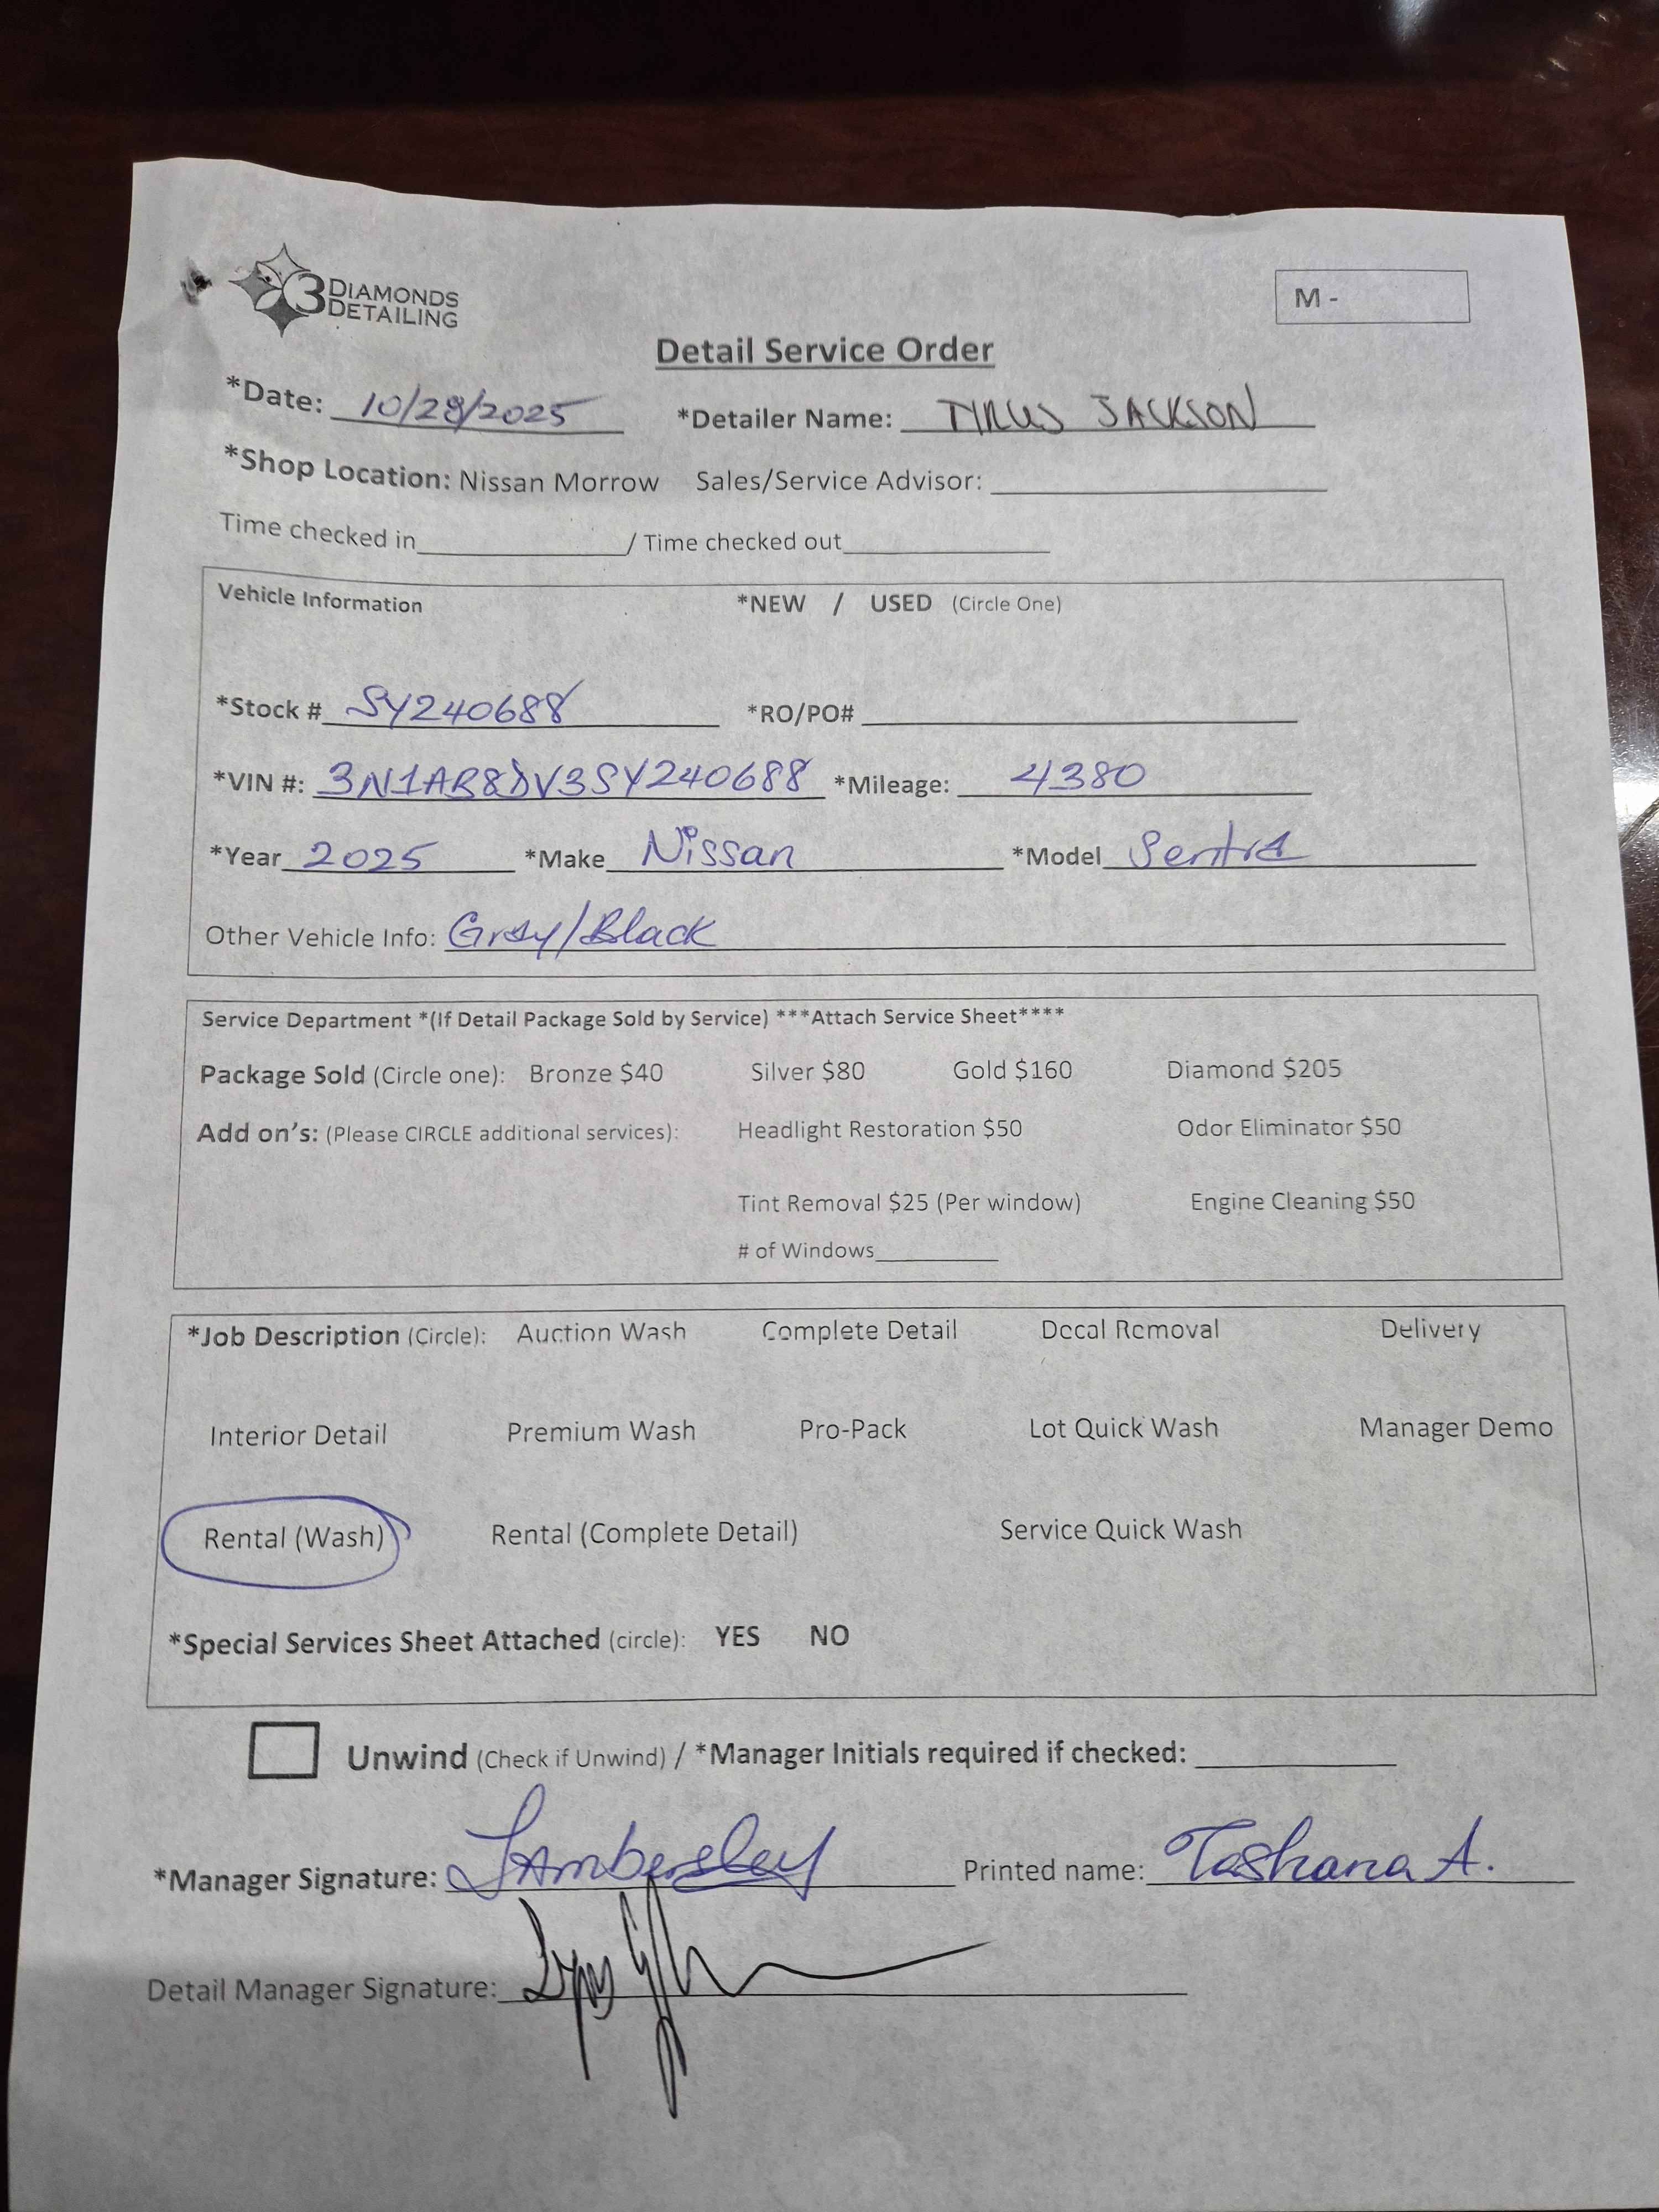 3 DIAMONDS
DETAILING
M -
Detail Service Order
*Date: 10/28/2025 *Detailer Name: TYRUS JACKSON
*Shop Location: Nissan Morrow Sales/Service Advisor:
Time checked in / Time checked out
Vehicle Information *NEW / USED (Circle One)
*Stock # SY240688 *RO/PO#
*VIN #: 3N1AB8DV3SY240688 *Mileage: 4380
*Year 2025 *Make Nissan *Model Sentra
Other Vehicle Info: Gray/Black
Service Department *(If Detail Package Sold by Service) ***Attach Service Sheet****
Package Sold (Circle one): Bronze $40 Silver $80 Gold $160 Diamond $205
Add on's: (Please CIRCLE additional services): Headlight Restoration $50 Odor Eliminator $50
Tint Removal $25 (Per window) Engine Cleaning $50
# of Windows
*Job Description (Circle): Auction Wash Complete Detail Decal Removal Delivery
Interior Detail Premium Wash Pro-Pack Lot Quick Wash Manager Demo
Rental (Wash) Rental (Complete Detail) Service Quick Wash
*Special Services Sheet Attached (circle): YES NO
Unwind (Check if Unwind) / *Manager Initials required if checked:
*Manager Signature: TAmbersley Printed name: Tashana A.
Detail Manager Signature: